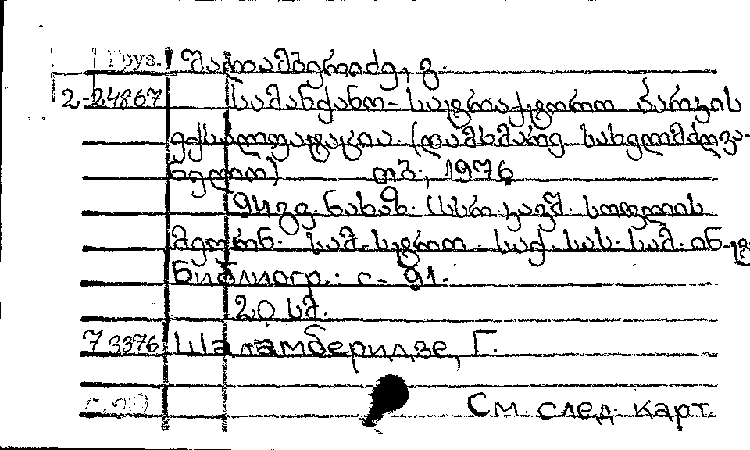 Груз. შალამბერიძე, გ.
2-24867 სამანქანო-სატრაქტორო პარკის
ექსპლოატაცია (დამხმარე სახელმძღვა-
ნელო) თბ., 1976
94 გვ. ნახაზ. (სსრ კავშ. სოფლის
მეურნ. სამ-სტრო. საქ. სას.-სამ. ინ-ტი)
Библиогр.: с. 91.
20 სმ.
73376 Шаламберидзе, Г.
См. след. карт.